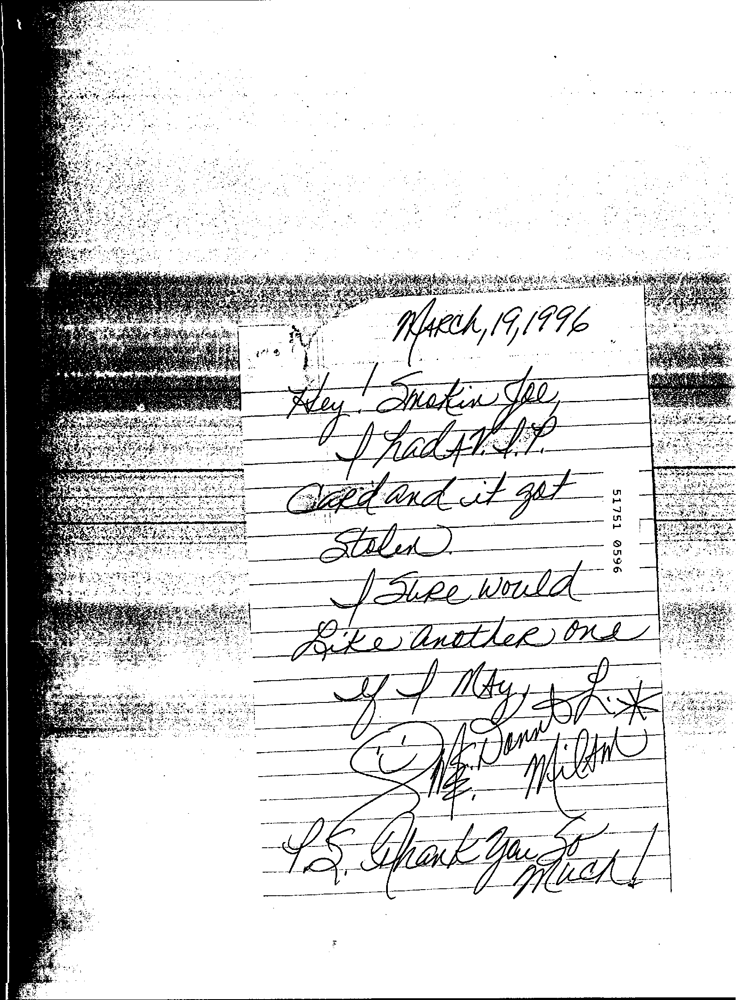 March, 19, 1996
Hey! Smokin Joe,
I had A V.I.P.
Card and it got
Stolen.
I Sure would
Like another one
if I May,
Ms. Donna L.
Milam
P.S. Thank You So
Much!
51751 0596